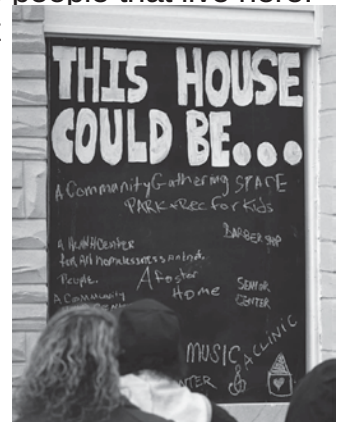 people that live here.
THIS HOUSE
COULD BE...
A Community Gathering SPACE
PARK & Rec for Kids
BARBER SHOP
for All homelessness
People.
A foster
Home
SENIOR
CENTER
A Community
MUSIC
A CLINIC